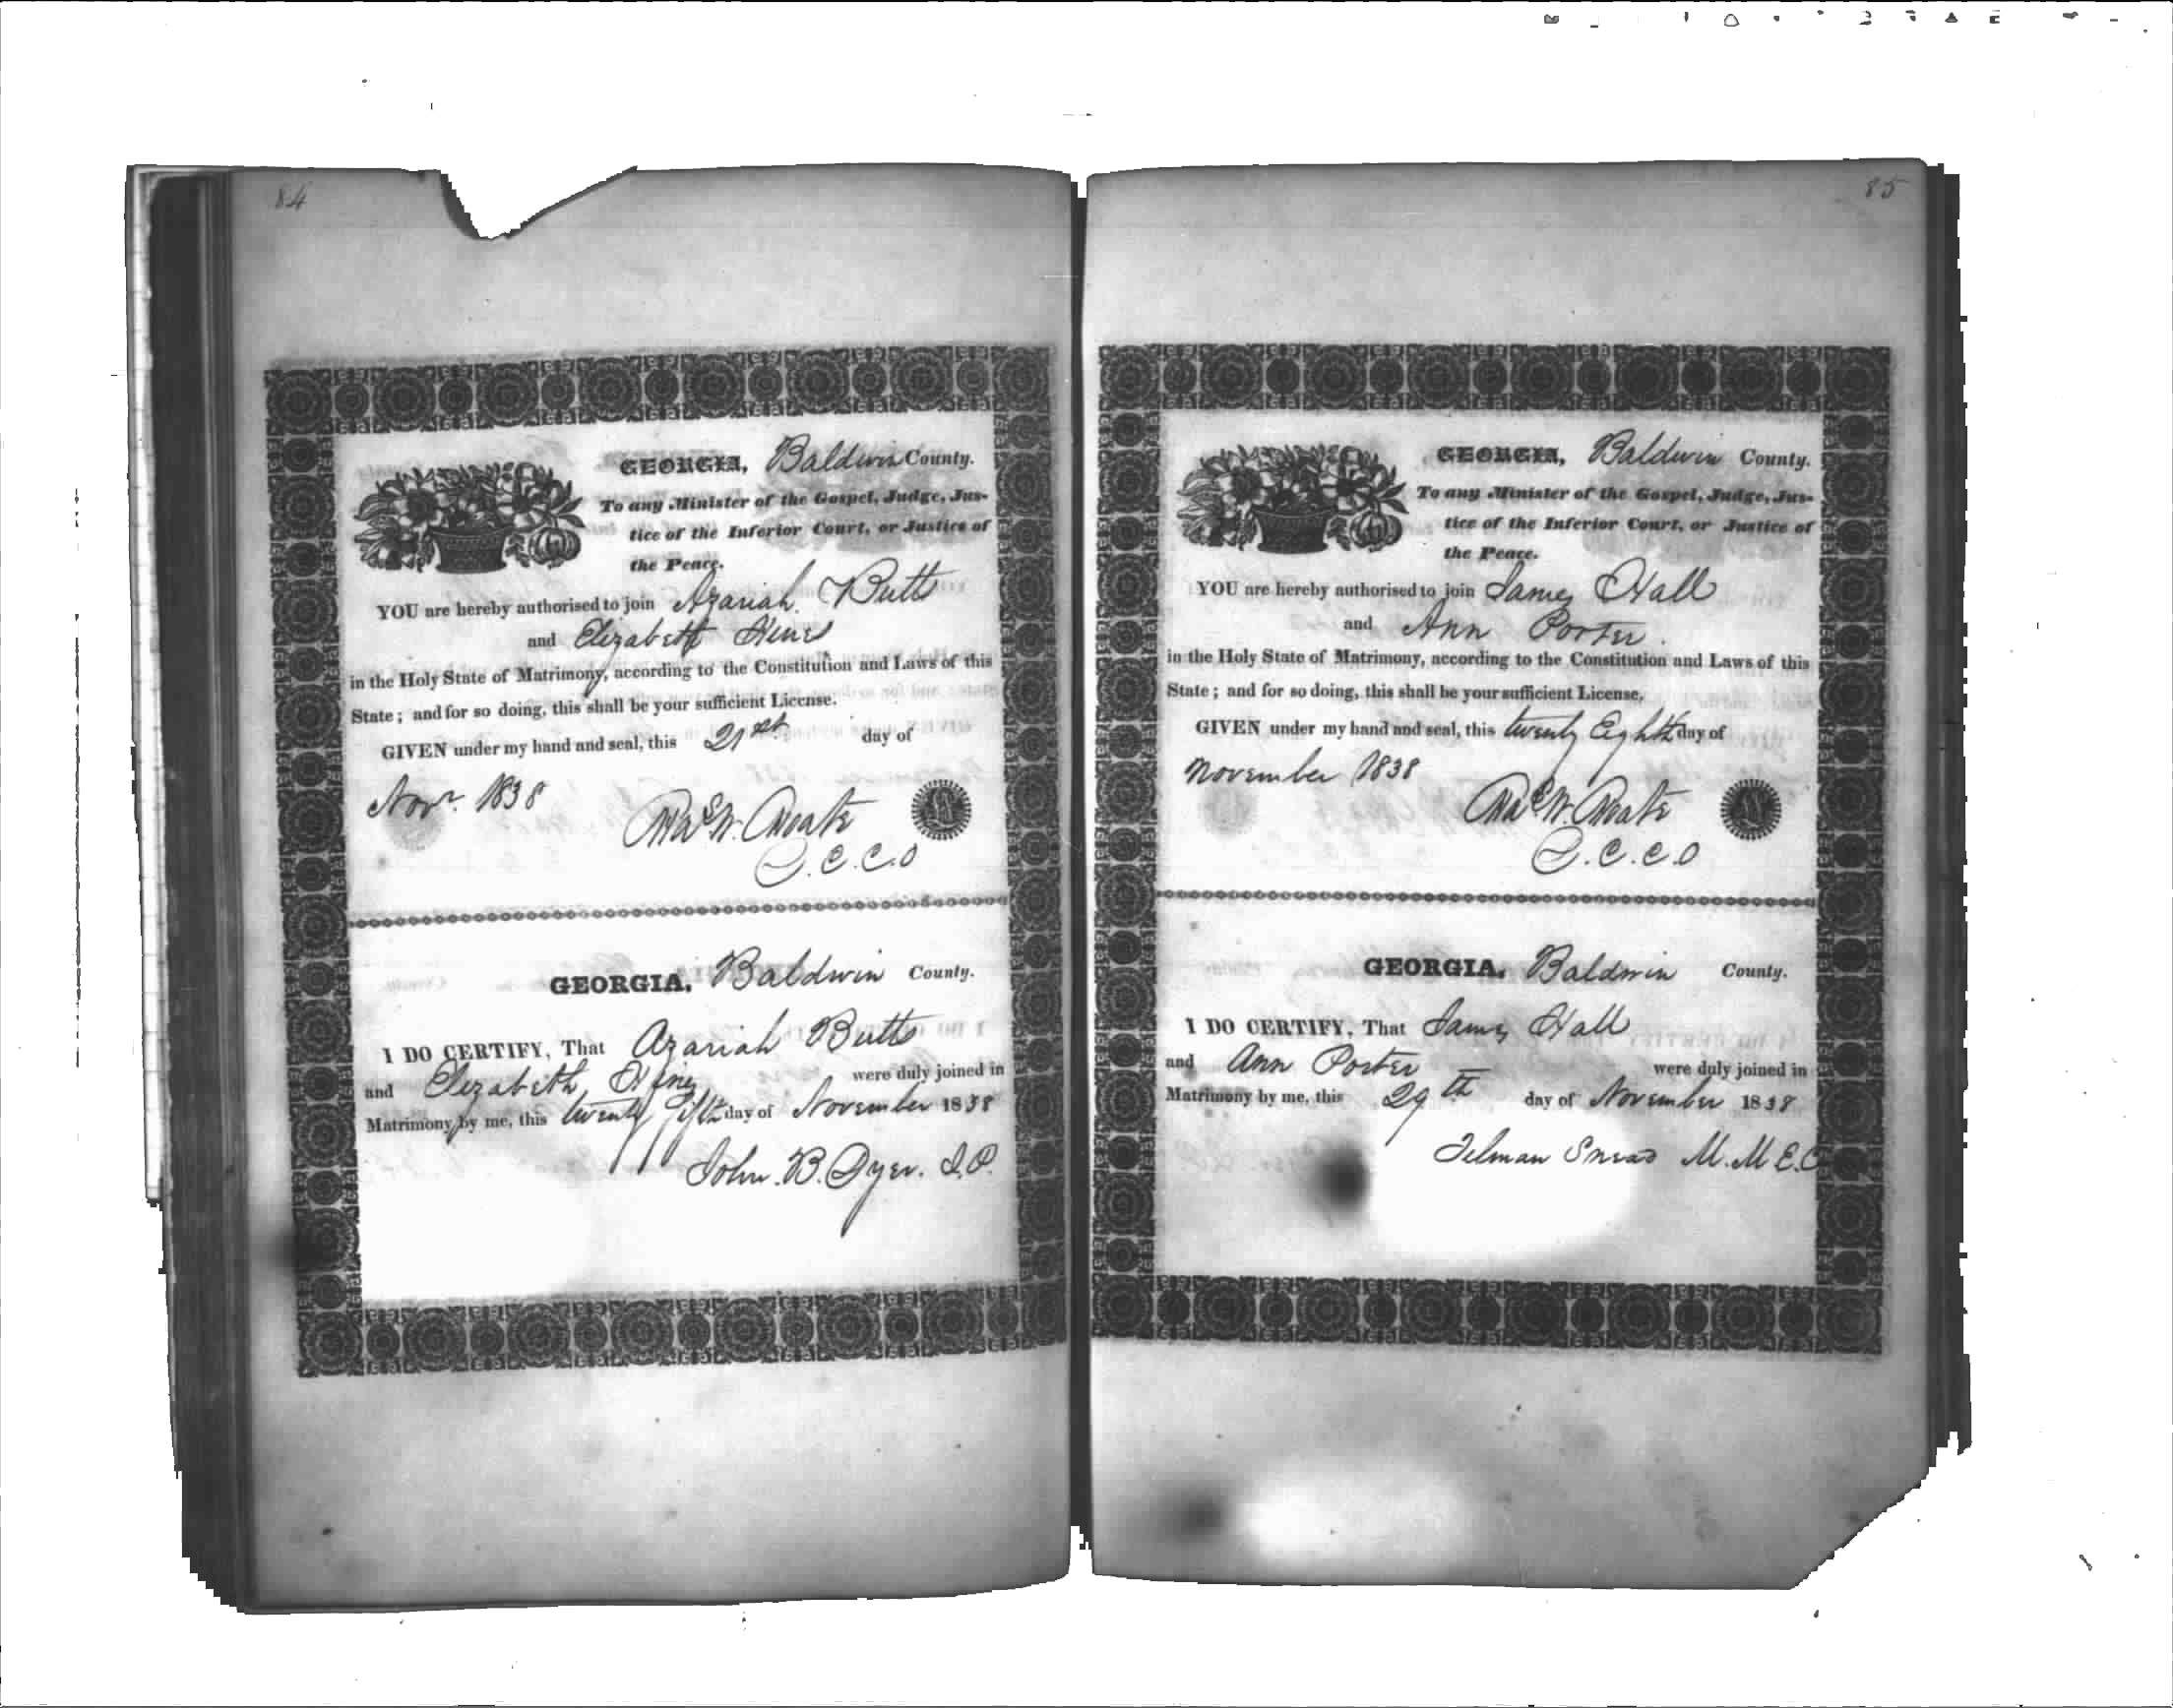 84
GEORGIA, Baldwin County.
To any Minister of the Gospel, Judge, Jus-
tice of the Inferior Court, or Justice of
the Peace.
YOU are hereby authorised to join Azariah Butts
and Elizabeth Hines
in the Holy State of Matrimony, according to the Constitution and Laws of this
State; and for so doing, this shall be your sufficient License.
GIVEN under my hand and seal, this 21st day of
Novr. 1838
W. Choate
C.C.O
GEORGIA, Baldwin County.
I DO CERTIFY, That Azariah Butts
and Elizabeth Hines were duly joined in
Matrimony by me, this twenty fifth day of November 1838
John B. Dyer. J.P.
85
GEORGIA, Baldwin County.
To any Minister of the Gospel, Judge, Jus-
tice of the Inferior Court, or Justice of
the Peace.
YOU are hereby authorised to join James Hall
and Ann Porter.
in the Holy State of Matrimony, according to the Constitution and Laws of this
State; and for so doing, this shall be your sufficient License.
GIVEN under my hand and seal, this twenty Eighth day of
November 1838
W. Choate
C.C.O
GEORGIA, Baldwin County.
I DO CERTIFY, That James Hall
and Ann Porter were duly joined in
Matrimony by me, this 29th day of November 1838
Tilman Snead M.M E.C